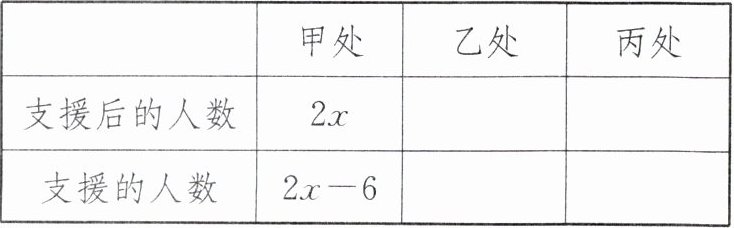 甲处 乙处 丙处
支援后的人数 2x
支援的人数 2x－6